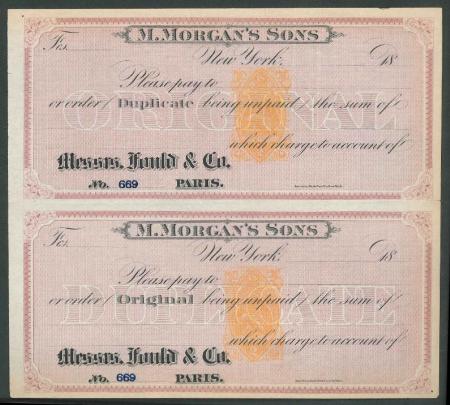 M. MORGAN'S SONS
Fcs. New York. 18
Please pay to
ORIGINAL
or order (Duplicate being unpaid) the sum of
which charge to account of
Messrs. Fould & Co.
No. 669 PARIS.
M. MORGAN'S SONS
Fcs. New York. 18
Please pay to
DUPLICATE
or order (Original being unpaid) the sum of
which charge to account of
Messrs. Fould & Co.
No. 669 PARIS.